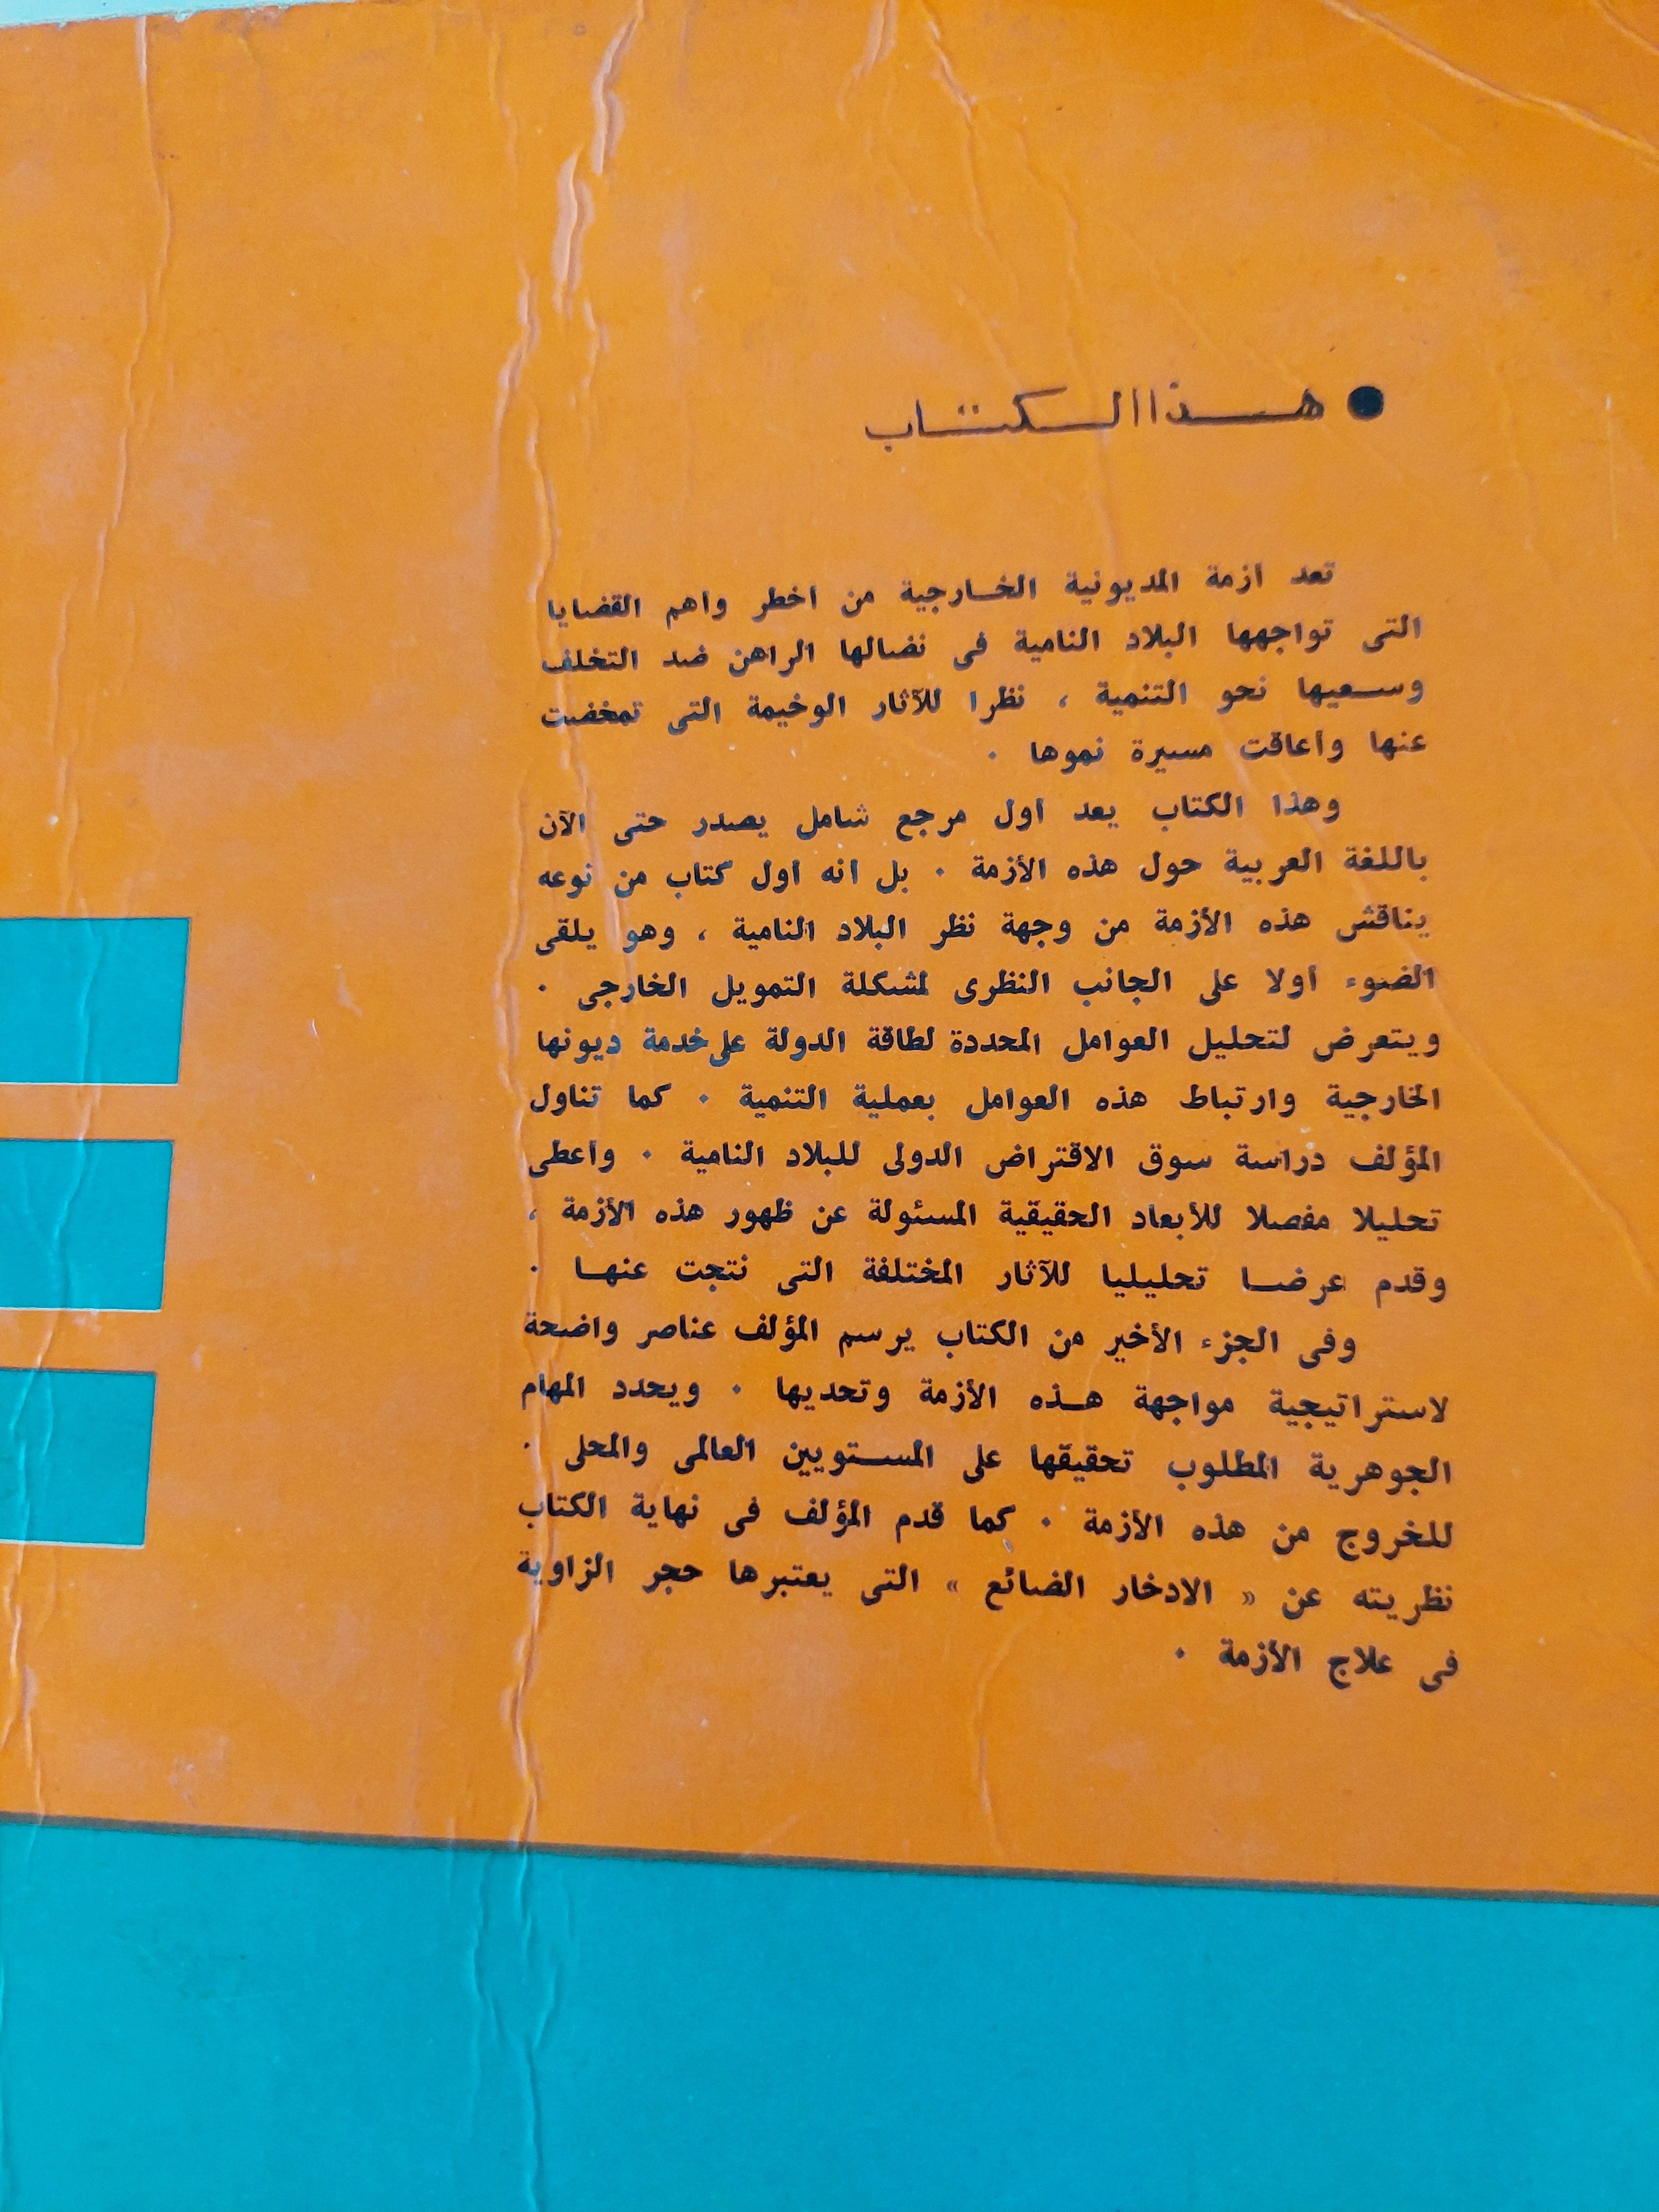 ● هــذا الــكتــاب
تعد ازمة المديونية الخـارجية من اخطر واهم القضايا
التى تواجهها البلاد النامية فى نضالها الراهن ضد التخلف
وسـعيها نحو التنمية ، نظرا للآثار الوخيمة التى تمخضت
عنها واعاقت مسيرة نموها ٠
وهذا الكتاب يعد اول مرجع شامل يصدر حتى الآن
باللغة العربية حول هذه الأزمة ٠ بل انه اول كتاب من نوعه
يناقش هذه الأزمة من وجهة نظر البلاد النامية ، وهو يلقى
الضوء اولا على الجانب النظرى لمشكلة التمويل الخارجى ٠
ويتعرض لتحليل العوامل المحددة لطاقة الدولة على خدمة ديونها
الخارجية وارتباط هذه العوامل بعملية التنمية ٠ كما تناول
المؤلف دراسة سوق الاقتراض الدولى للبلاد النامية ٠ واعطى
تحليلا مفصلا للأبعاد الحقيقية المسئولة عن ظهور هذه الأزمة ،
وقدم عرضـا تحليليا للآثار المختلفة التى نتجت عنهـا ٠
وفى الجزء الأخير من الكتاب يرسم المؤلف عناصر واضحة
لاستراتيجية مواجهة هـذه الأزمة وتحديها ٠ ويحدد المهام
الجوهرية المطلوب تحقيقها على المسـتويين العالمى والمحلى ٠
للخروج من هذه الأزمة ٠ كما قدم المؤلف فى نهاية الكتاب
نظريته عن « الادخار الضائع » التى يعتبرها حجر الزاوية
فى علاج الأزمة ٠